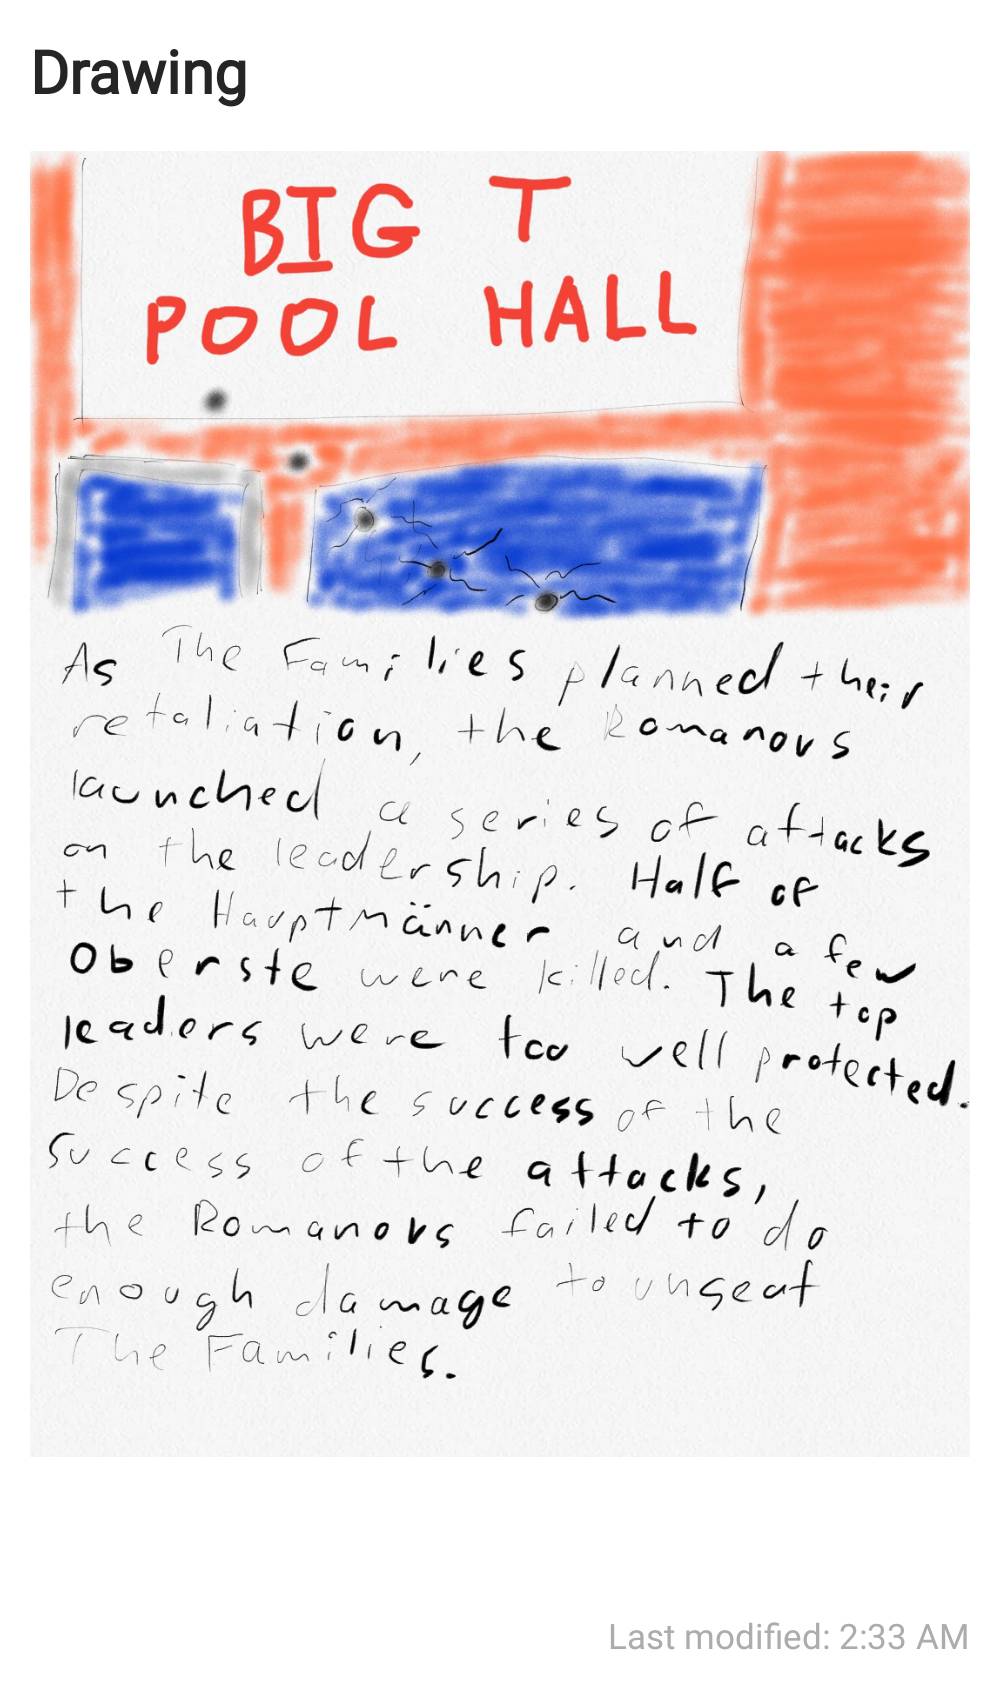 Drawing
BIG T
POOL HALL
As The Families planned their
retaliation, the Romanovs
launched a series of attacks
on the leadership. Half of
the Hauptmänner and a few
Oberste were killed. The top
leaders were too well protected.
Despite the success of the
success of the attacks,
the Romanovs failed to do
enough damage to unseat
The Families.
Last modified: 2:33 AM